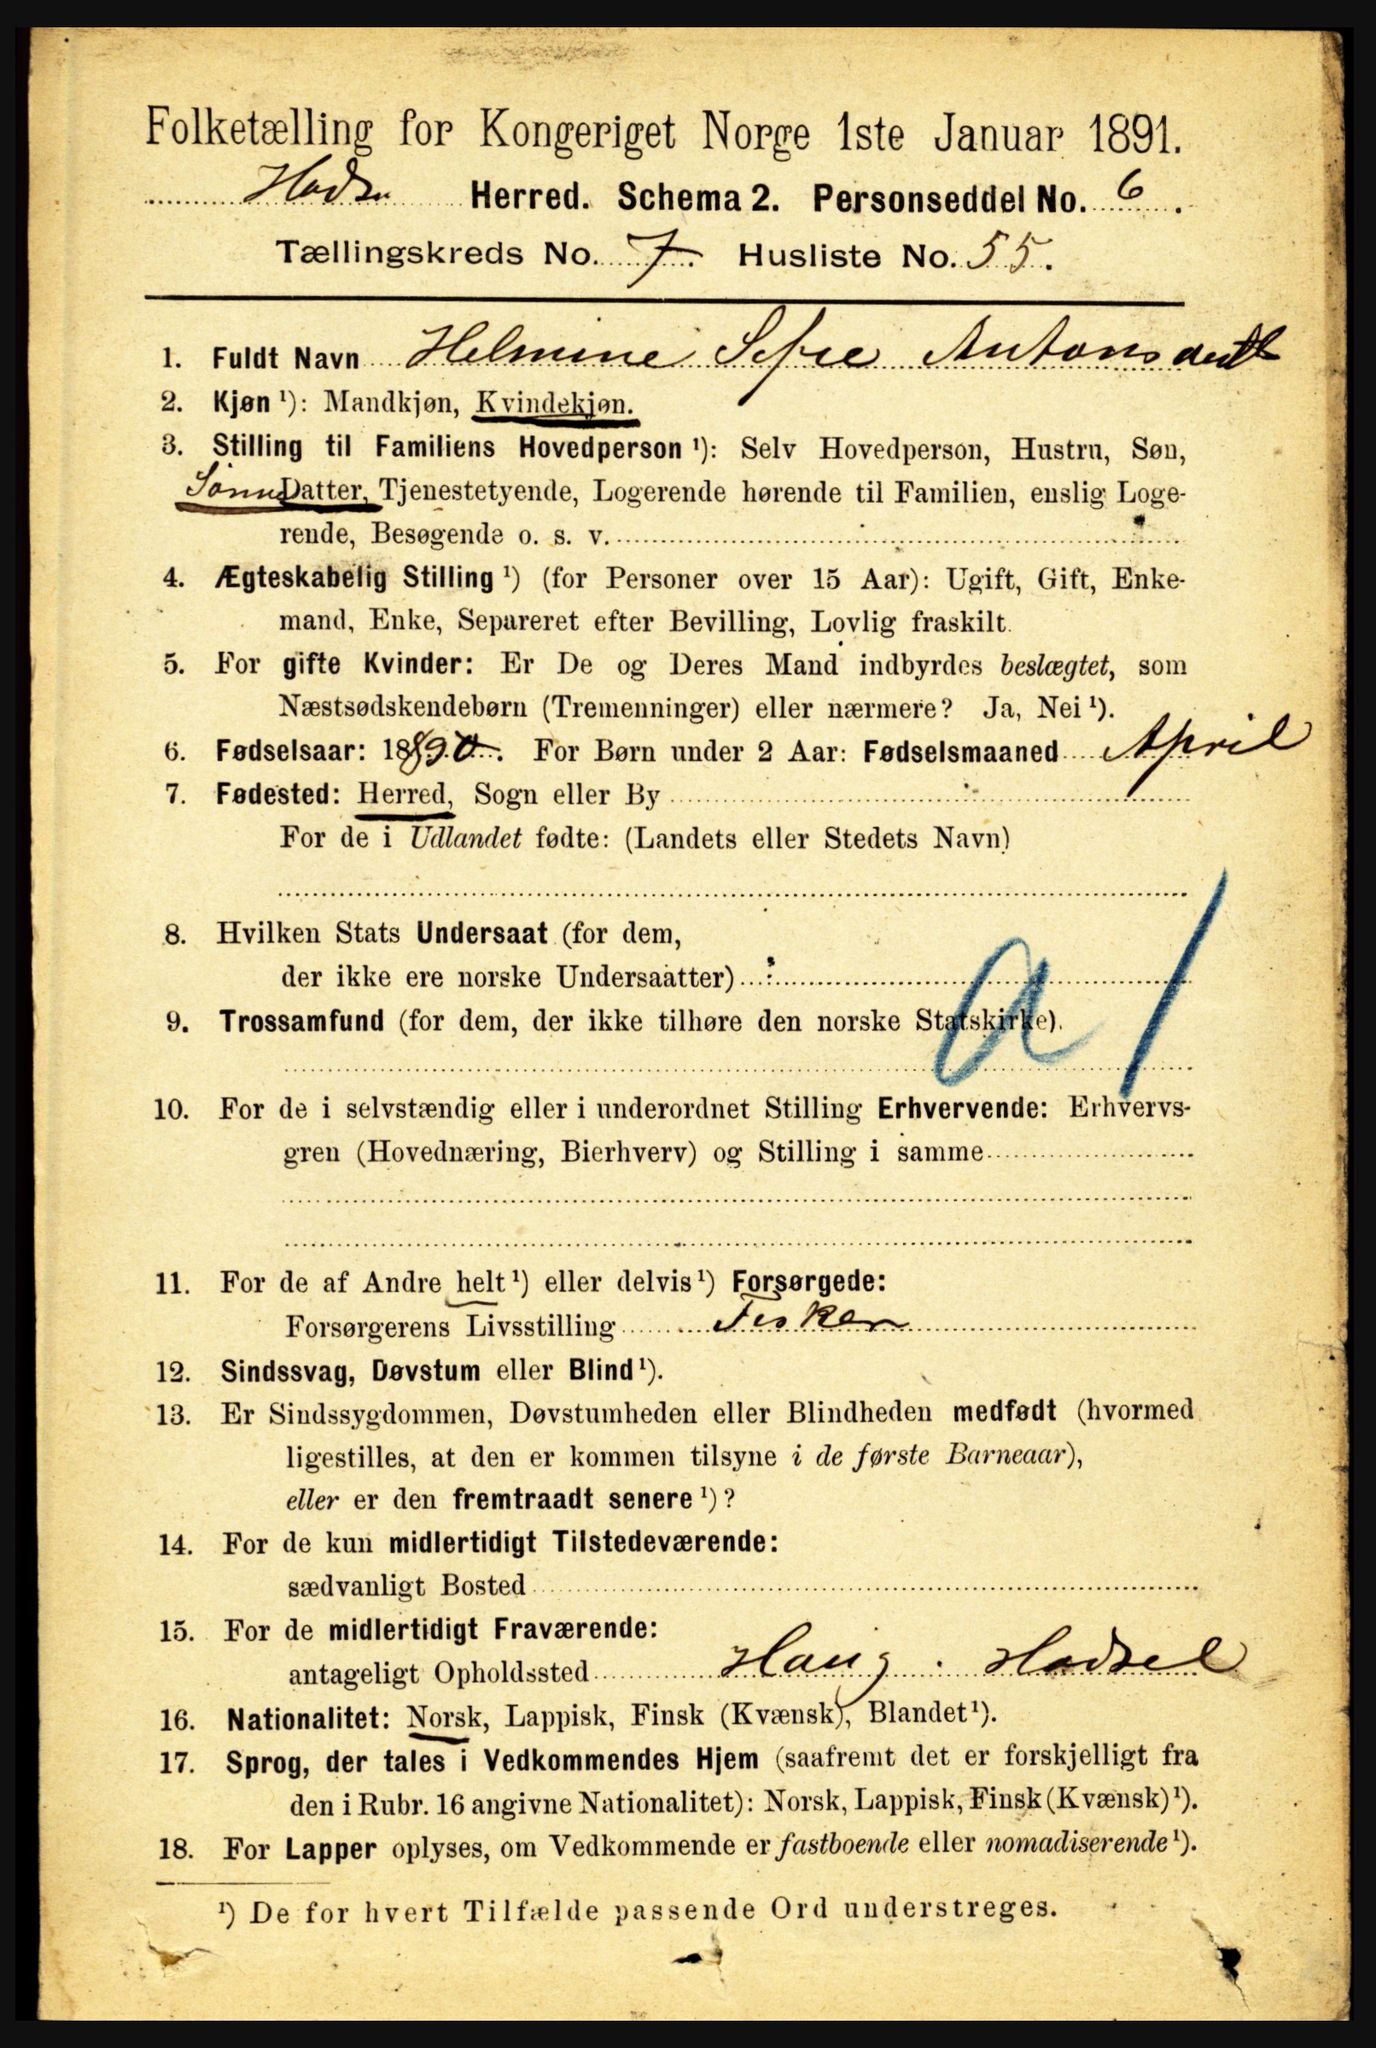 Folketælling for Kongeriget Norge 1ste Januar 1891.
Herred. Schema 2. Personseddel No. 6.
Tællingskreds No. 7. Husliste No. 55.
1. Fuldt Navn Helmine Sofie Antonsdatt
2. Kjøn ¹): Mandkjøn, Kvindekjøn.
3. Stilling til Familiens Hovedperson ¹): Selv Hovedperson, Hustru, Søn,
Sønne Datter, Tjenestetyende, Logerende hørende til Familien, enslig Loge-
rende, Besøgende o. s. v.
4. Ægteskabelig Stilling ¹) (for Personer over 15 Aar): Ugift, Gift, Enke-
mand, Enke, Separeret efter Bevilling, Lovlig fraskilt.
5. For gifte Kvinder: Er De og Deres Mand indbyrdes beslægtet, som
Næstsødskendebørn (Tremenninger) eller nærmere? Ja, Nei ¹).
6. Fødselsaar: 1890. For Børn under 2 Aar: Fødselsmaaned April
7. Fødested: Herred, Sogn eller By
For de i Udlandet fødte: (Landets eller Stedets Navn)
8. Hvilken Stats Undersaat (for dem,
der ikke ere norske Undersaatter)
a 1
9. Trossamfund (for dem, der ikke tilhøre den norske Statskirke).
10. For de i selvstændig eller i underordnet Stilling Erhvervende: Erhvervs-
gren (Hovednæring, Bierhverv) og Stilling i samme
11. For de af Andre helt ¹) eller delvis ¹) Forsørgede:
Forsørgerens Livsstilling Fisker
12. Sindssvag, Døvstum eller Blind ¹).
13. Er Sindssygdommen, Døvstumheden eller Blindheden medfødt (hvormed
ligestilles, at den er kommen tilsyne i de første Barneaar),
eller er den fremtraadt senere ¹)?
14. For de kun midlertidigt Tilstedeværende:
sædvanligt Bosted
15. For de midlertidigt Fraværende:
antageligt Opholdssted Haug. Hadsel
16. Nationalitet: Norsk, Lappisk, Finsk (Kvænsk), Blandet ¹).
17. Sprog, der tales i Vedkommendes Hjem (saafremt det er forskjelligt fra
den i Rubr. 16 angivne Nationalitet): Norsk, Lappisk, Finsk (Kvænsk) ¹).
18. For Lapper oplyses, om Vedkommende er fastboende eller nomadiserende ¹).
¹) De for hvert Tilfælde passende Ord understreges.